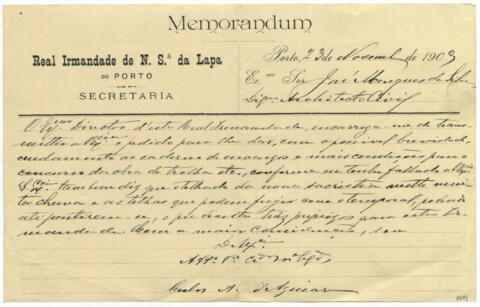 Memorandum
Real Irmandade de N. S.ª da Lapa
DO PORTO
SECRETARIA
Porto, 23 de Novemb. de 1903
Ex.mo Snr. José Marques da Silva
Dig.mo Architecto Civil
O Ex.mo Director d'esta Real Irmandade, encarrega-me de trans-
mittir a V. Ex.ª o pedido para lhe dar, com a possivel brevidade,
andamento ao caderno de encargos e mais condições para
concurso da obra de trolha etc., conforme me tenho fallado a V. Ex.ª
S. Ex.ª tambem diz que o telhado da nova sacristia mette muita
chuva e as telhas que podem fugir com o temporal, podendo
até partirem-se, o que resulta
para esta Ir-
mandade. Com a maior consideração, sou
De V. Ex.ª
Att.º V.or
Carlos A. de